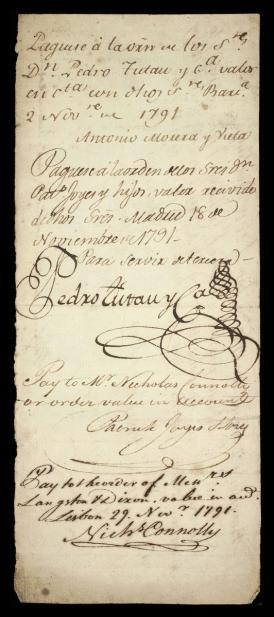 Paguese à la orn de los Sres
Dn Pedro Tutau y Ca valor
en cta con dhos Sres Bara
2 Novre de 1791
Antonio Morera y
Paguese à la orden de los Sres Dn
Patro Joyes y hijos, valor recivido
de dhos Sres Madrid 18 de
Noviembre de 1791
Para servir de tercera
Pedro Tutau y Ca
Pay to Mr Nicholas Connolly
or order value in account
Patrick Joyes
Pay to the order of Messrs
Langston & Dixon, value in acct.
Lisbon 29. Novr 1791.
Nichs Connolly